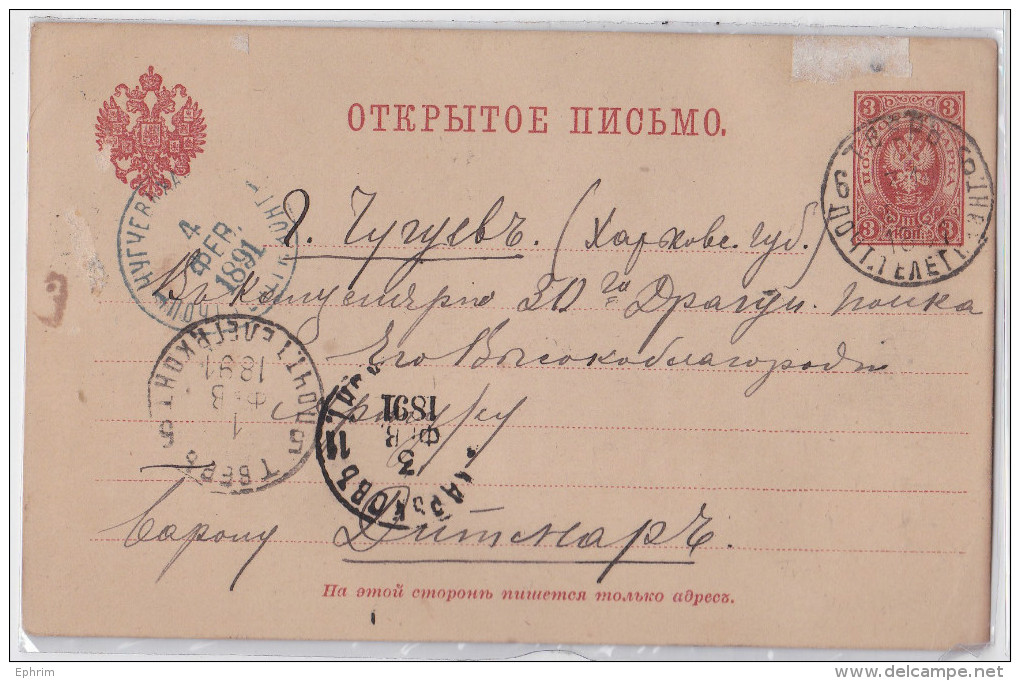 ОТКРЫТОЕ ПИСЬМО.
3 3
ПОЧТОВАЯ МАРКА
3 КОП. 3
ЧУГУЕВ
4
ФЕВ.
1891
г. Чугуевъ. (Харьковс. губ.)
Въ канцелярію 30го Драгун. полка
Его Высокоблагородію
Барону Дитмаръ.
ТВЕРЬ
5 ПОЧТ. ТЕЛЕГР. КОНТ. 5
1
ФЕВ
1891
ХАРЬКОВЪ
3
ФЕВ
1891
6 ПОЧТ. ТЕЛЕГР.
На этой сторонѣ пишется только адресъ.
Ephrim
www.delcampe.net